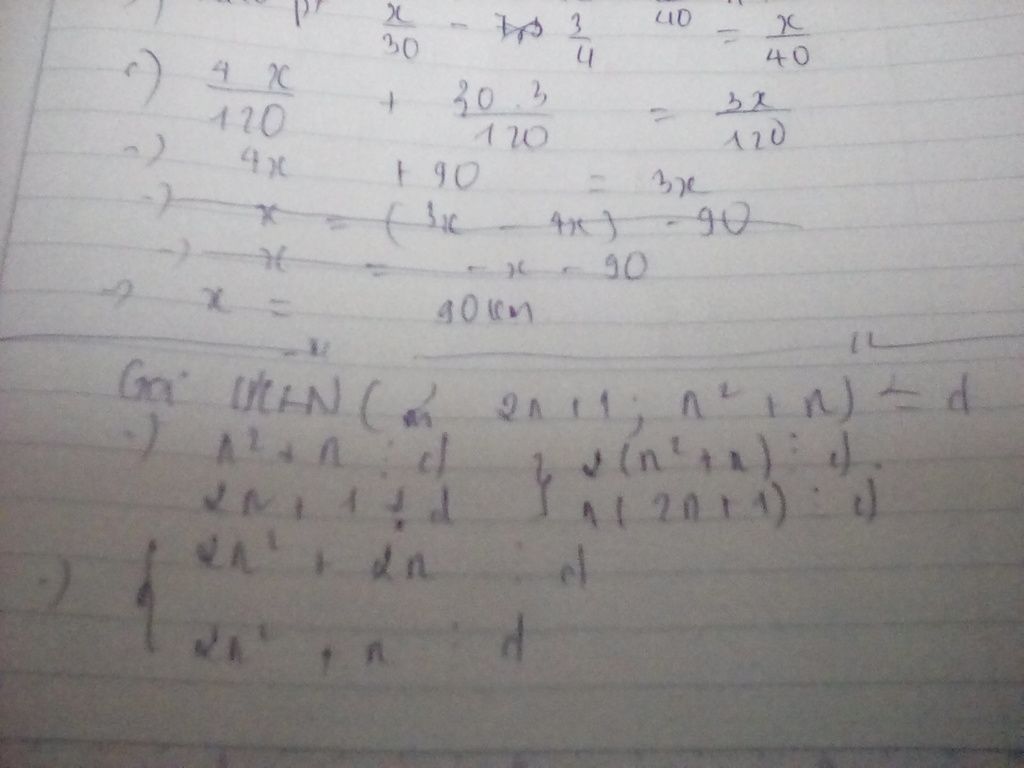 x/30 - 3/4 = x/40
4x/120 + 30.3/120 = 3x/120
4x + 90 = 3x
x = (3x - 4x) - 90
x = -x - 90
=> x = 90km
Gọi ƯCLN( 2n+1; n² + n) = d
n² + n ⋮ d } 2(n²+n) ⋮ d.
2n + 1 ⋮ d } n(2n+1) ⋮ d
{ 2n² + 2n ⋮ d
2n² + n ⋮ d